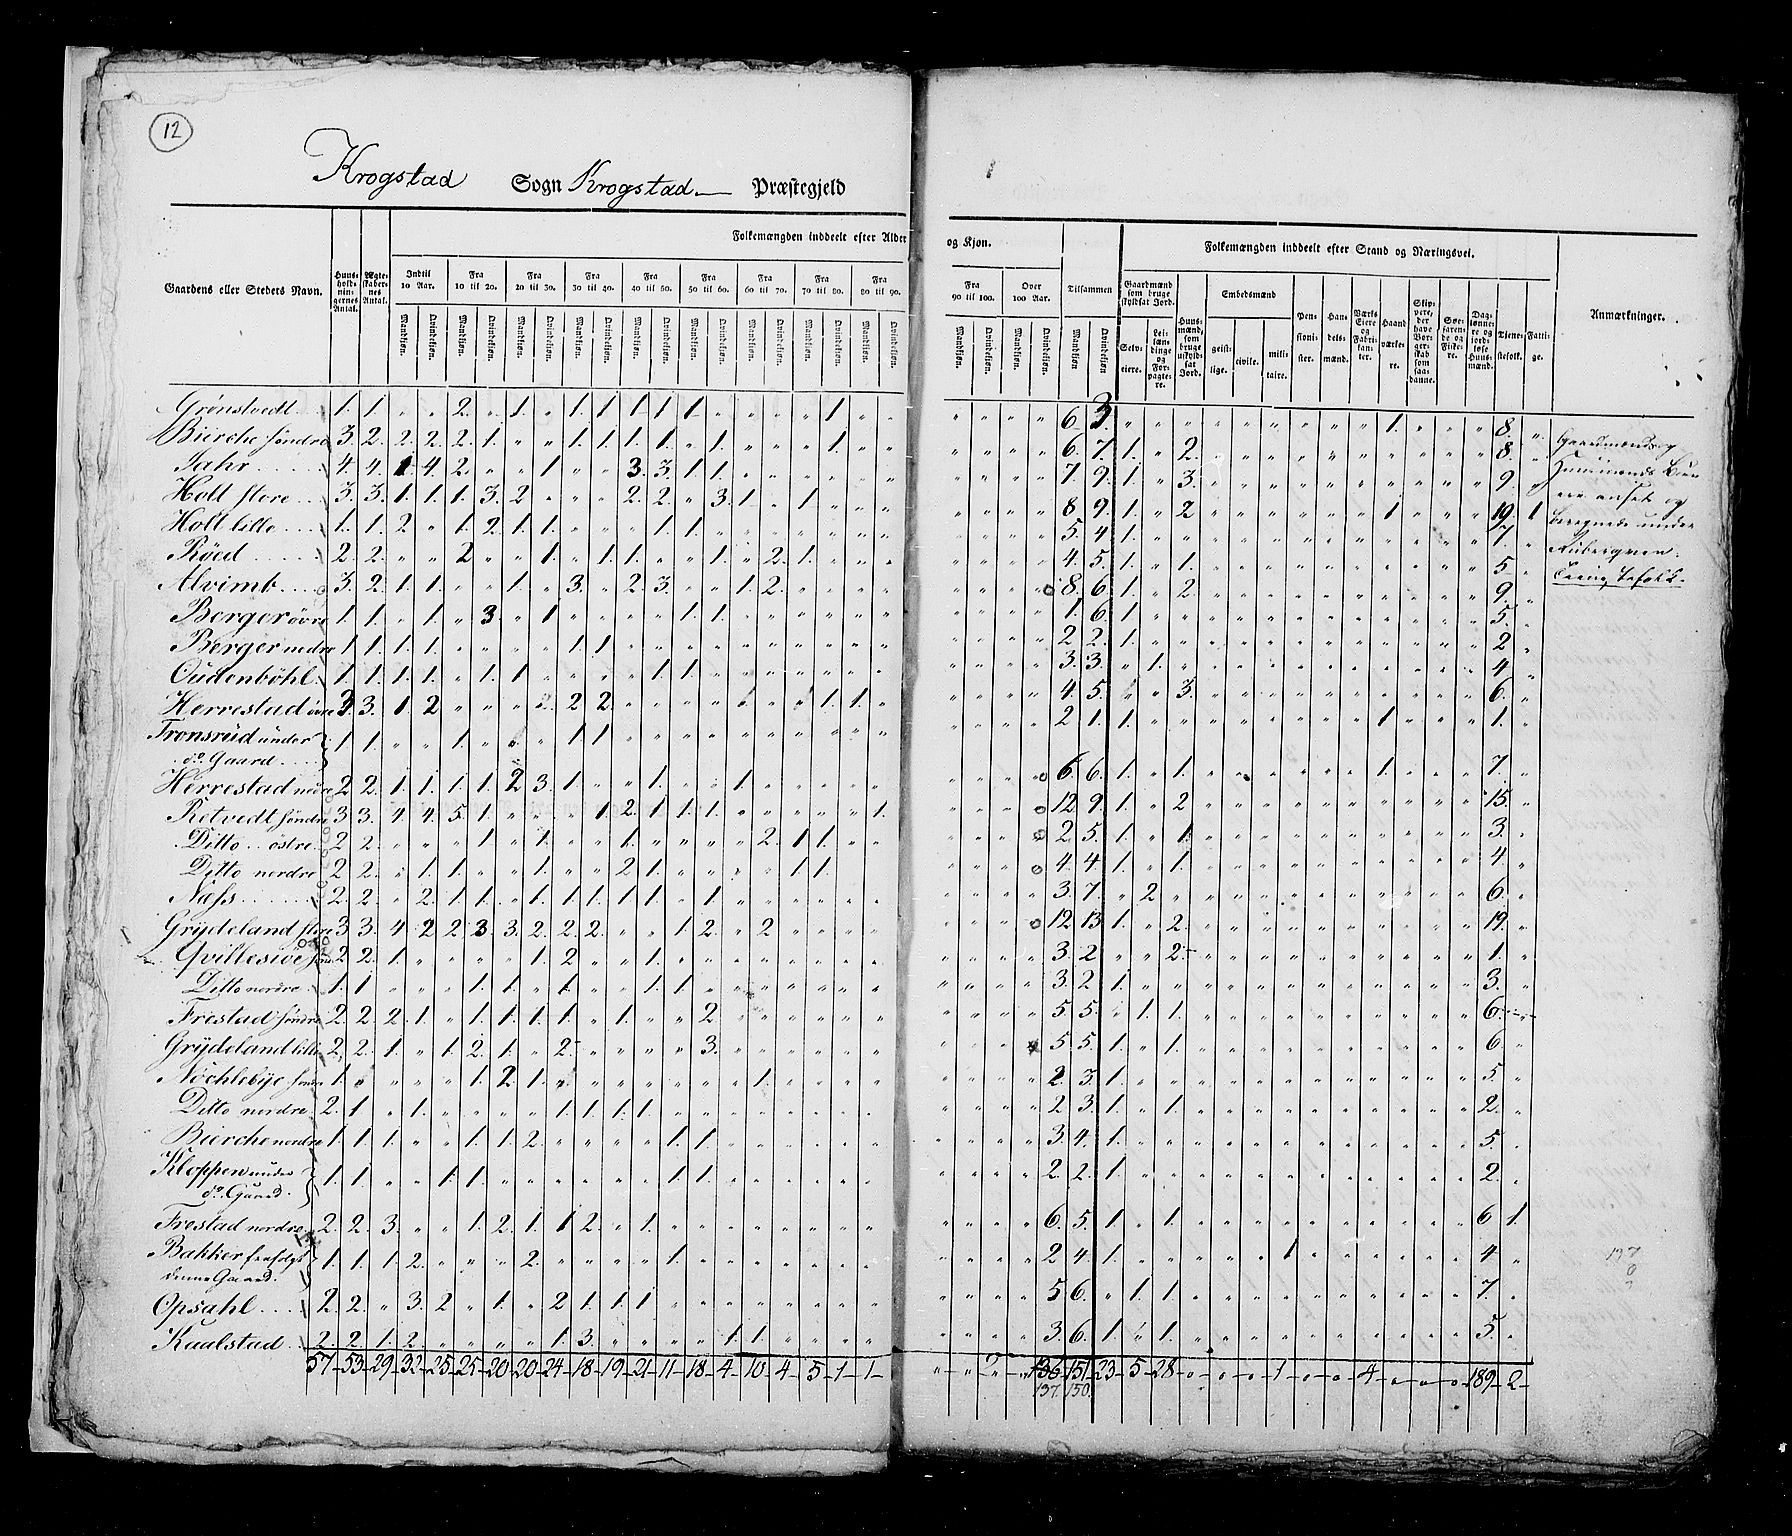 12
Krogstad Sogn Krogstad Præstegjeld
Gaardens eller Stedets Navn.
Huusholdningernes Antal.
Ægteskabernes Antal.
Folkemængden inddeelt efter Alder
og Kjøn.
Indtil 10 Aar.
Fra 10 til 20.
Fra 20 til 30.
Fra 30 til 40.
Fra 40 til 50.
Fra 50 til 60.
Fra 60 til 70.
Fra 70 til 80.
Fra 80 til 90.
Fra 90 til 100.
Over 100 Aar.
Tilsammen
Mandkjøn. Qvindekjøn.
Folkemængden inddeelt efter Stand og Næringsvei.
Gaardmænd som bruge skyldsat Jord.
Selveiere.
Leilændinge og Forpagtere.
Huusmænd, som bruge uskyldsat Jord.
Embedsmænd
geistlige. civile. militaire.
Pensionister.
Handelsmænd.
Værks Eiere og Fabrikanter.
Haandværkere.
Skippere, der have Borgerskab som saadanne.
Søefarende og Fiskere.
Daglønnere og jordløse Huusmænd.
Tjenestefolk.
Fattige.
Anmærkninger.
Grønstvedt 1. 1. 2. 1. 1. 1 1. 1. 1. 1. 6. 3. 1. 8.
Bierche søndre 3. 2. 2. 2. 2. 1. 1. 1. 1. 1. 1. 1. 6. 7. 1. 2. 8.
Jahr 4. 4. 1. 4. 2. 1. 3. 3. 1. 1. 7. 9. 1. 3. 9.
Holt store 3. 3. 1. 1. 1. 3. 2. 2. 2. 3. 1. 1. 8 9. 1. 2 1. 19. 1
Holt lille 1. 1. 2 1. 2. 1. 1. 1. 1. 5. 4 1. 7.
Röed 2. 2. 2 1. 1. 1. 1. 2. 1. 4. 5. 1. 1. 5
Alvimb 3. 2. 1. 1. 1. 3. 2. 3. 1. 2. 8. 6. 1. 2. 9.
Berger övre 1. 1. 1. 3. 1 1. 1. 1. 6. 1 5.
Berger nedre 1 1. 1. 1. 1 1. 2 2. 1. 2
Oudenböhl 1. 1. 1. 1. 1. 1 1. 1. 3. 3. 1. 4
Herrestad övre 3. 3. 1. 2 2 2. 1. 1. 4. 5. 3. 6.
Tronsrüd under 1 1. 1. 1. 1 2 1. 1. 1 1.
do. Gaard
Herrestad nedre 2 2. 1. 1. 1. 1. 2 3. 1. 1. 1. 6. 6. 1. 1. 1. 7.
Retvedt söndre 3 3. 4. 4. 5. 1. 1. 2. 1. 1. 1. 1. 12. 9. 1. 2 15.
Ditto östre 2 2. 1. 1. 1. 2. 1 1. 2. 5. 1. 1. 3.
Ditto nordre 2 2. 1. 1. 1. 2 1. 1 1. 4. 4 1. 1. 4.
Næss 2. 2. 2. 1. 1. 1. 1. 1. 1. 1. 1. 1. 3. 7. 2 6.
Grÿdeland store 3 3. 4 2 2. 3. 3. 2. 2. 2. 1. 2. 2. 12 13. 1. 2. 19.
Qvillesiöe 2 2. 1. 1. 2. 1. 3. 2 2. 1.
Ditto nordre 1. 1 1. 1. 1. 1. 1. 3. 2 1. 3.
Frestad söndre 2. 2. 2. 1. 1. 1. 1. 1. 1. 1. 2 5 5. 1. 1. 6.
Grÿdeland lille 2. 2. 1. 1. 2. 1. 2. 3. 5. 5. 1. 1. 6.
Nöchlebÿe 1. 1. 2 1. 1. 2. 3. 1. 5.
Ditto nordre 2. 1 1. 1. 1. 1. 1. 2. 3. 1. 1. 2.
Bierche nordre 1. 1. 1. 1. 1. 2. 1. 1. 3. 4. 1. 5.
Kloppen under 1. 1. 1. 1. 1. 1. 2. 2. 1. 2.
do. Gaard
Frestad nordre 2. 2. 3. 1. 2. 1. 1 2. 1. 6. 5. 1. 1. 6 1.
Bakker 1. 1. 1. 2. 2. 1. 2 4. 1. 1 4
denne Gaard.
Opsahl 2. 2. 3. 2 1. 2 1. 1. 1 5 6. 1. 1 7.
Kaalstad 2. 2. 1. 2. 1. 3. 1. 1. 3. 6. 1. 1. 5.
57 53 29 32 25 25 20 20 24 18 19 21 11 18 4 10 4 5 1 1 2 136 151 23 5 28 0 0 0 1 0 0 4 0 0 0 189 2
137. 150.
Gaardmænds og
Huusmænds
ere anført og
beregnede under
137
0